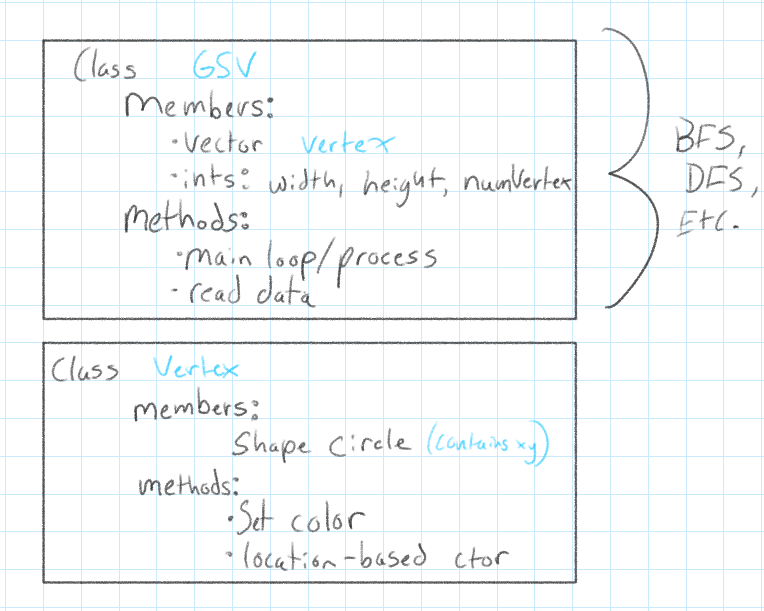 Class GSV
Members:
·vector vertex
·ints: width, height, numVertex
Methods:
·main loop/process
·read data
BFS,
DFS,
Etc.
Class Vertex
members:
Shape Circle (contains xy)
methods:
·Set color
·location-based ctor